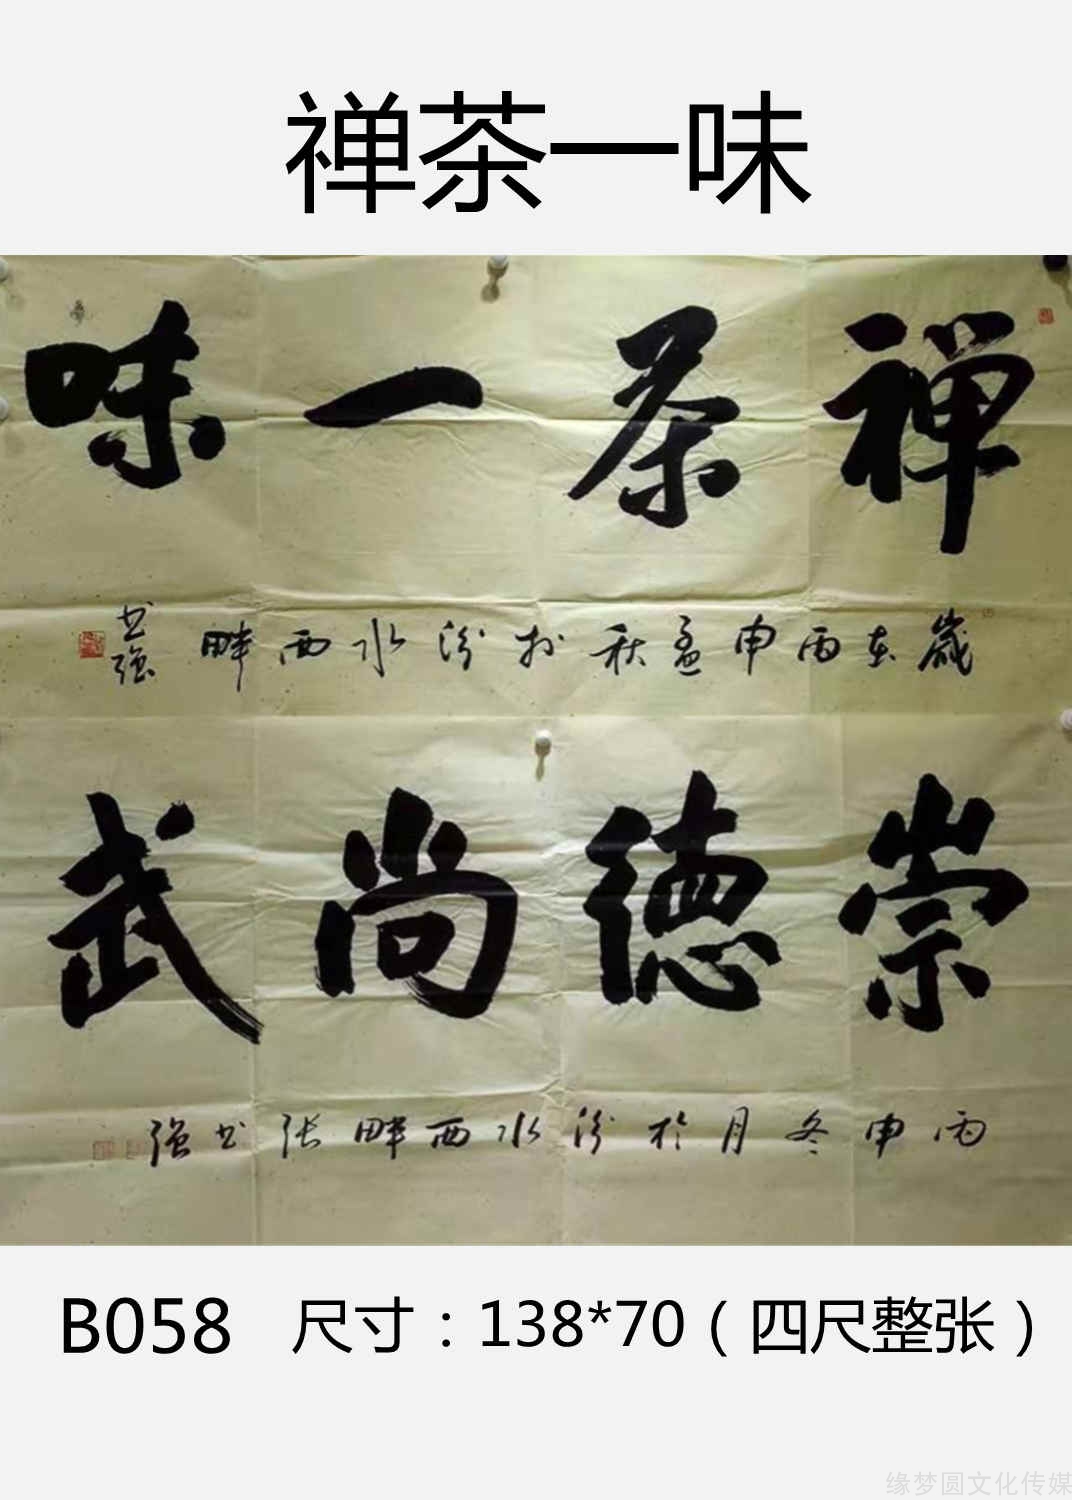 禅茶一味
禅茶一味
歲在丙申孟秋於汾水西畔
书强
崇德尚武
丙申冬月於汾水西畔张书强
B058 尺寸：138*70（四尺整张）
缘梦圆文化传媒